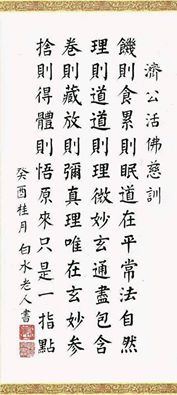 濟公活佛慈訓
饑則食累則眠道在平常法自然
理則道道則理微妙玄通盡包含
卷則藏放則彌真理唯在玄妙参
捨則得體則悟原來只是一指點
癸酉桂月 白水老人書